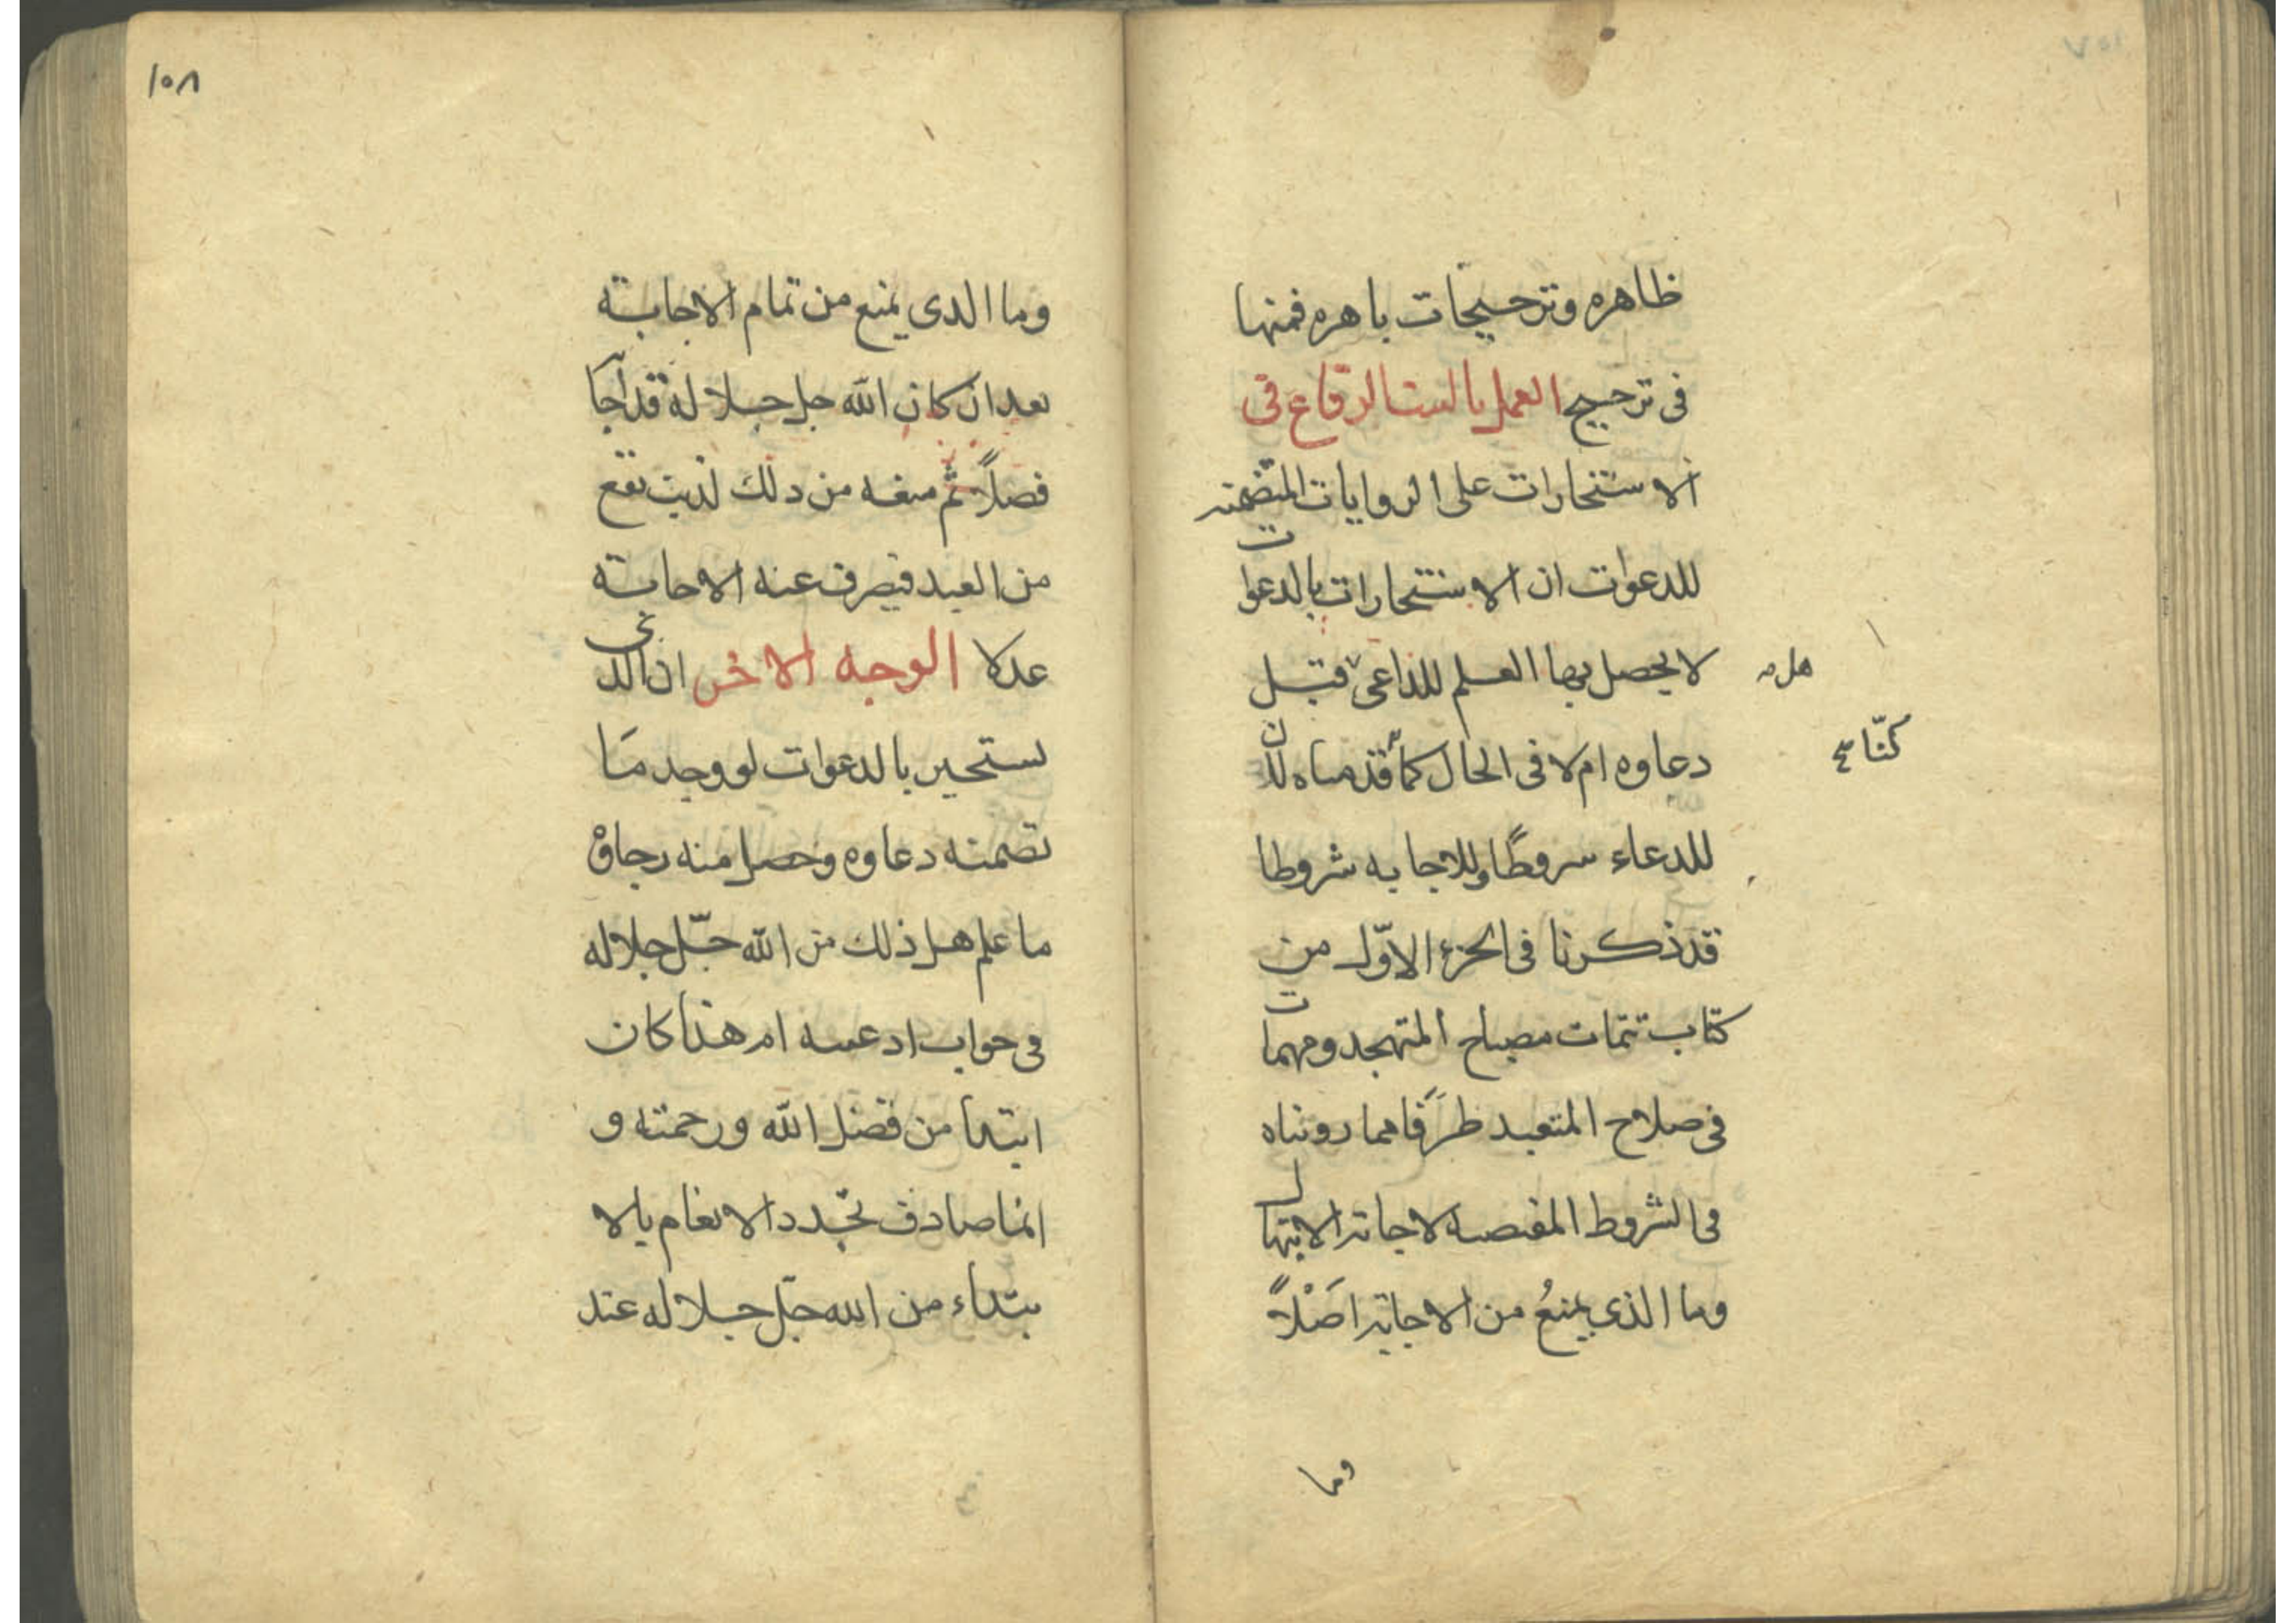 ظاهره وترجيحات باهره فمنها
فى ترجيح العمل بالست الرقاع فى
الاستخارات على الروايات المتضمنه
للدعوات ان الاستخارات بالدعوات
لا يحصل بها العلم للداعى قبل
هل
دعاوه ام لا فى الحال كما قدمناه لان
كنّا
للدعاء سروطًا وللاجابه شروطا
قد ذكرنا فى الجزء الاوّل من
كتاب تتمات مصباح المتهجد ومهمات
فى صلاح المتعبد طرَفا مما رويناه
فى الشروط المقتضيه لاجابة الابتهال
وما الذى يمنعُ من الاجابة اصْلاً
وما
١٥٨
وما الدى يمنع من تمام الاجابة
بعد ان كان الله جل جلاله قد اجا
فصلاً ثم منعه من دلك لذنب تقع
من العبد فيصرف عنه الاجابة
عدلا الوجه الاخر ان الذى
يستخير بالدعوات لو وجد مَا
تضمنه دعاوه وحصل منه رجاؤ
ما علم هل ذلك من الله جلّ جلاله
فى جواب ادعيته ام هذا كان
ابتداء من فضل الله ورحمته و
انما صادف تجدد الانعام بالا
بتداء من الله جلّ جلاله عند